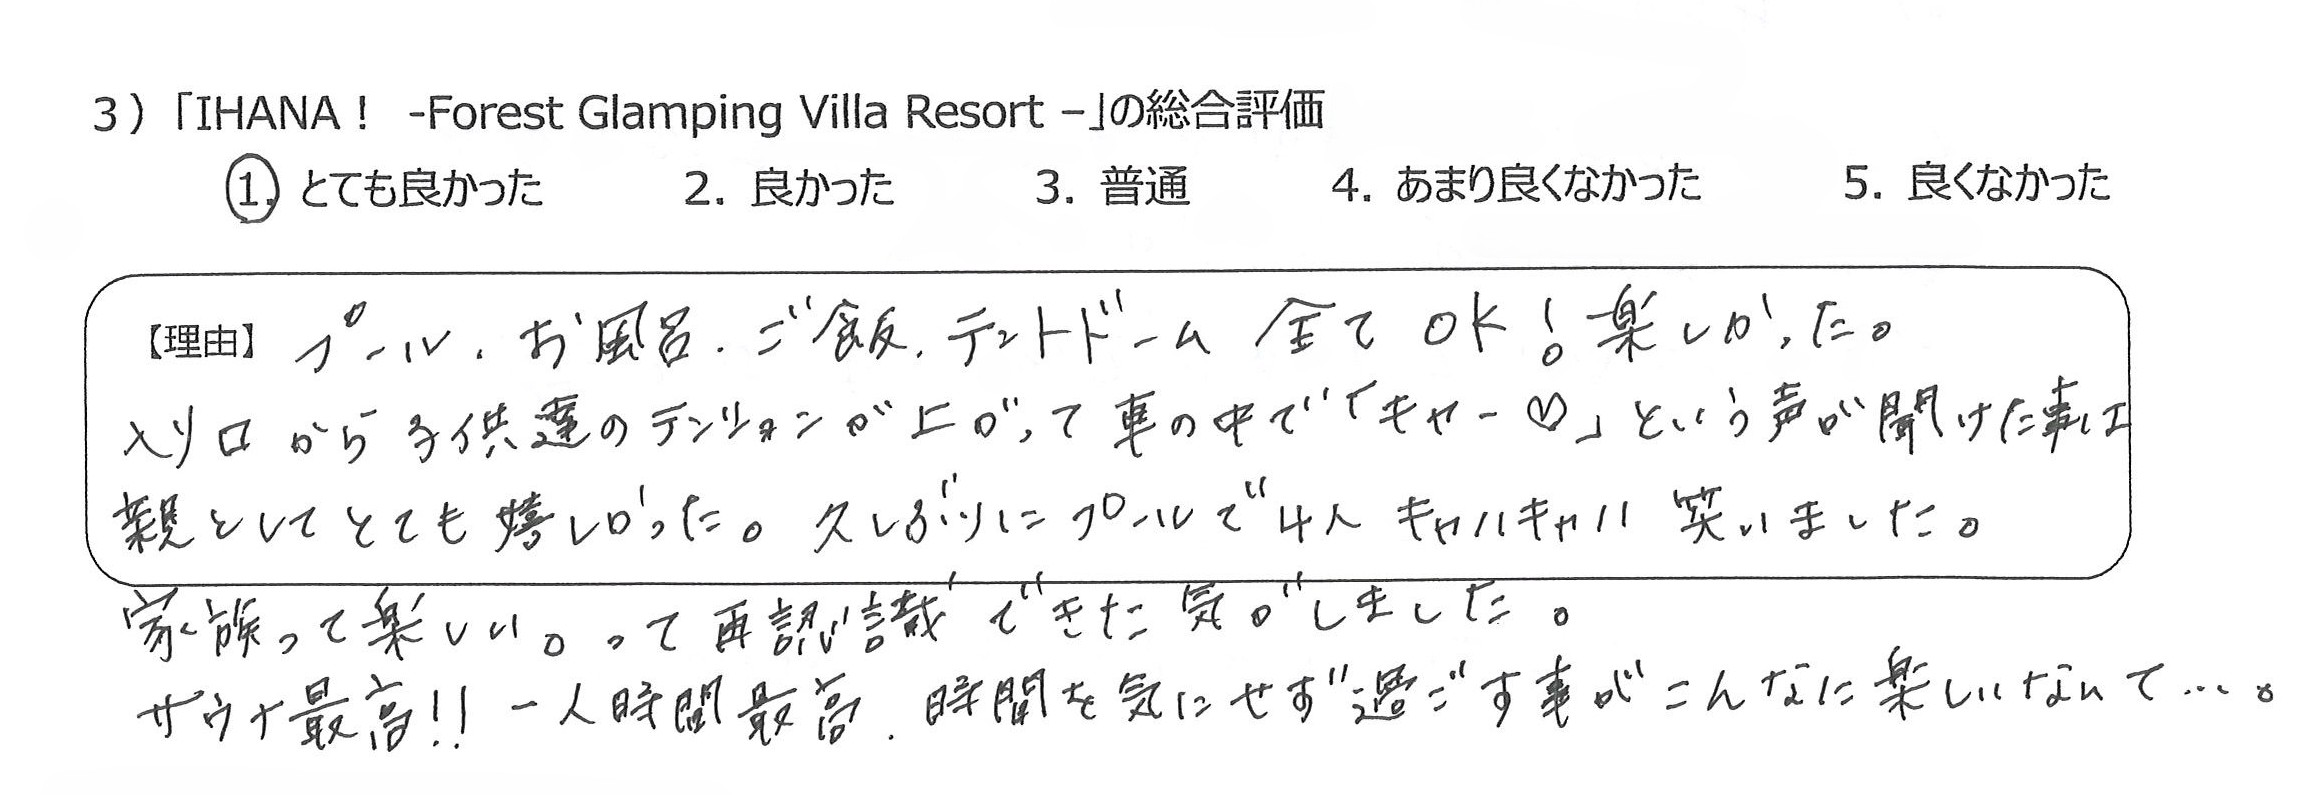 3)「IHANA! -Forest Glamping Villa Resort –」の総合評価
1. とても良かった 2. 良かった 3. 普通 4. あまり良くなかった 5. 良くなかった
【理由】プール、お風呂、ご飯、テントドーム 全て OK! 楽しかった。
入り口から子供達のテンションが上がって車の中で「キャー♡」という声が聞けた事は
親としてとても嬉しかった。久しぶりにプールで4人キャハキャハ笑いました。
家族って楽しい。って再認識できた気がしました。
サウナ最高!! 一人時間最高、時間を気にせず過ごす事がこんなに楽しいなんて…。